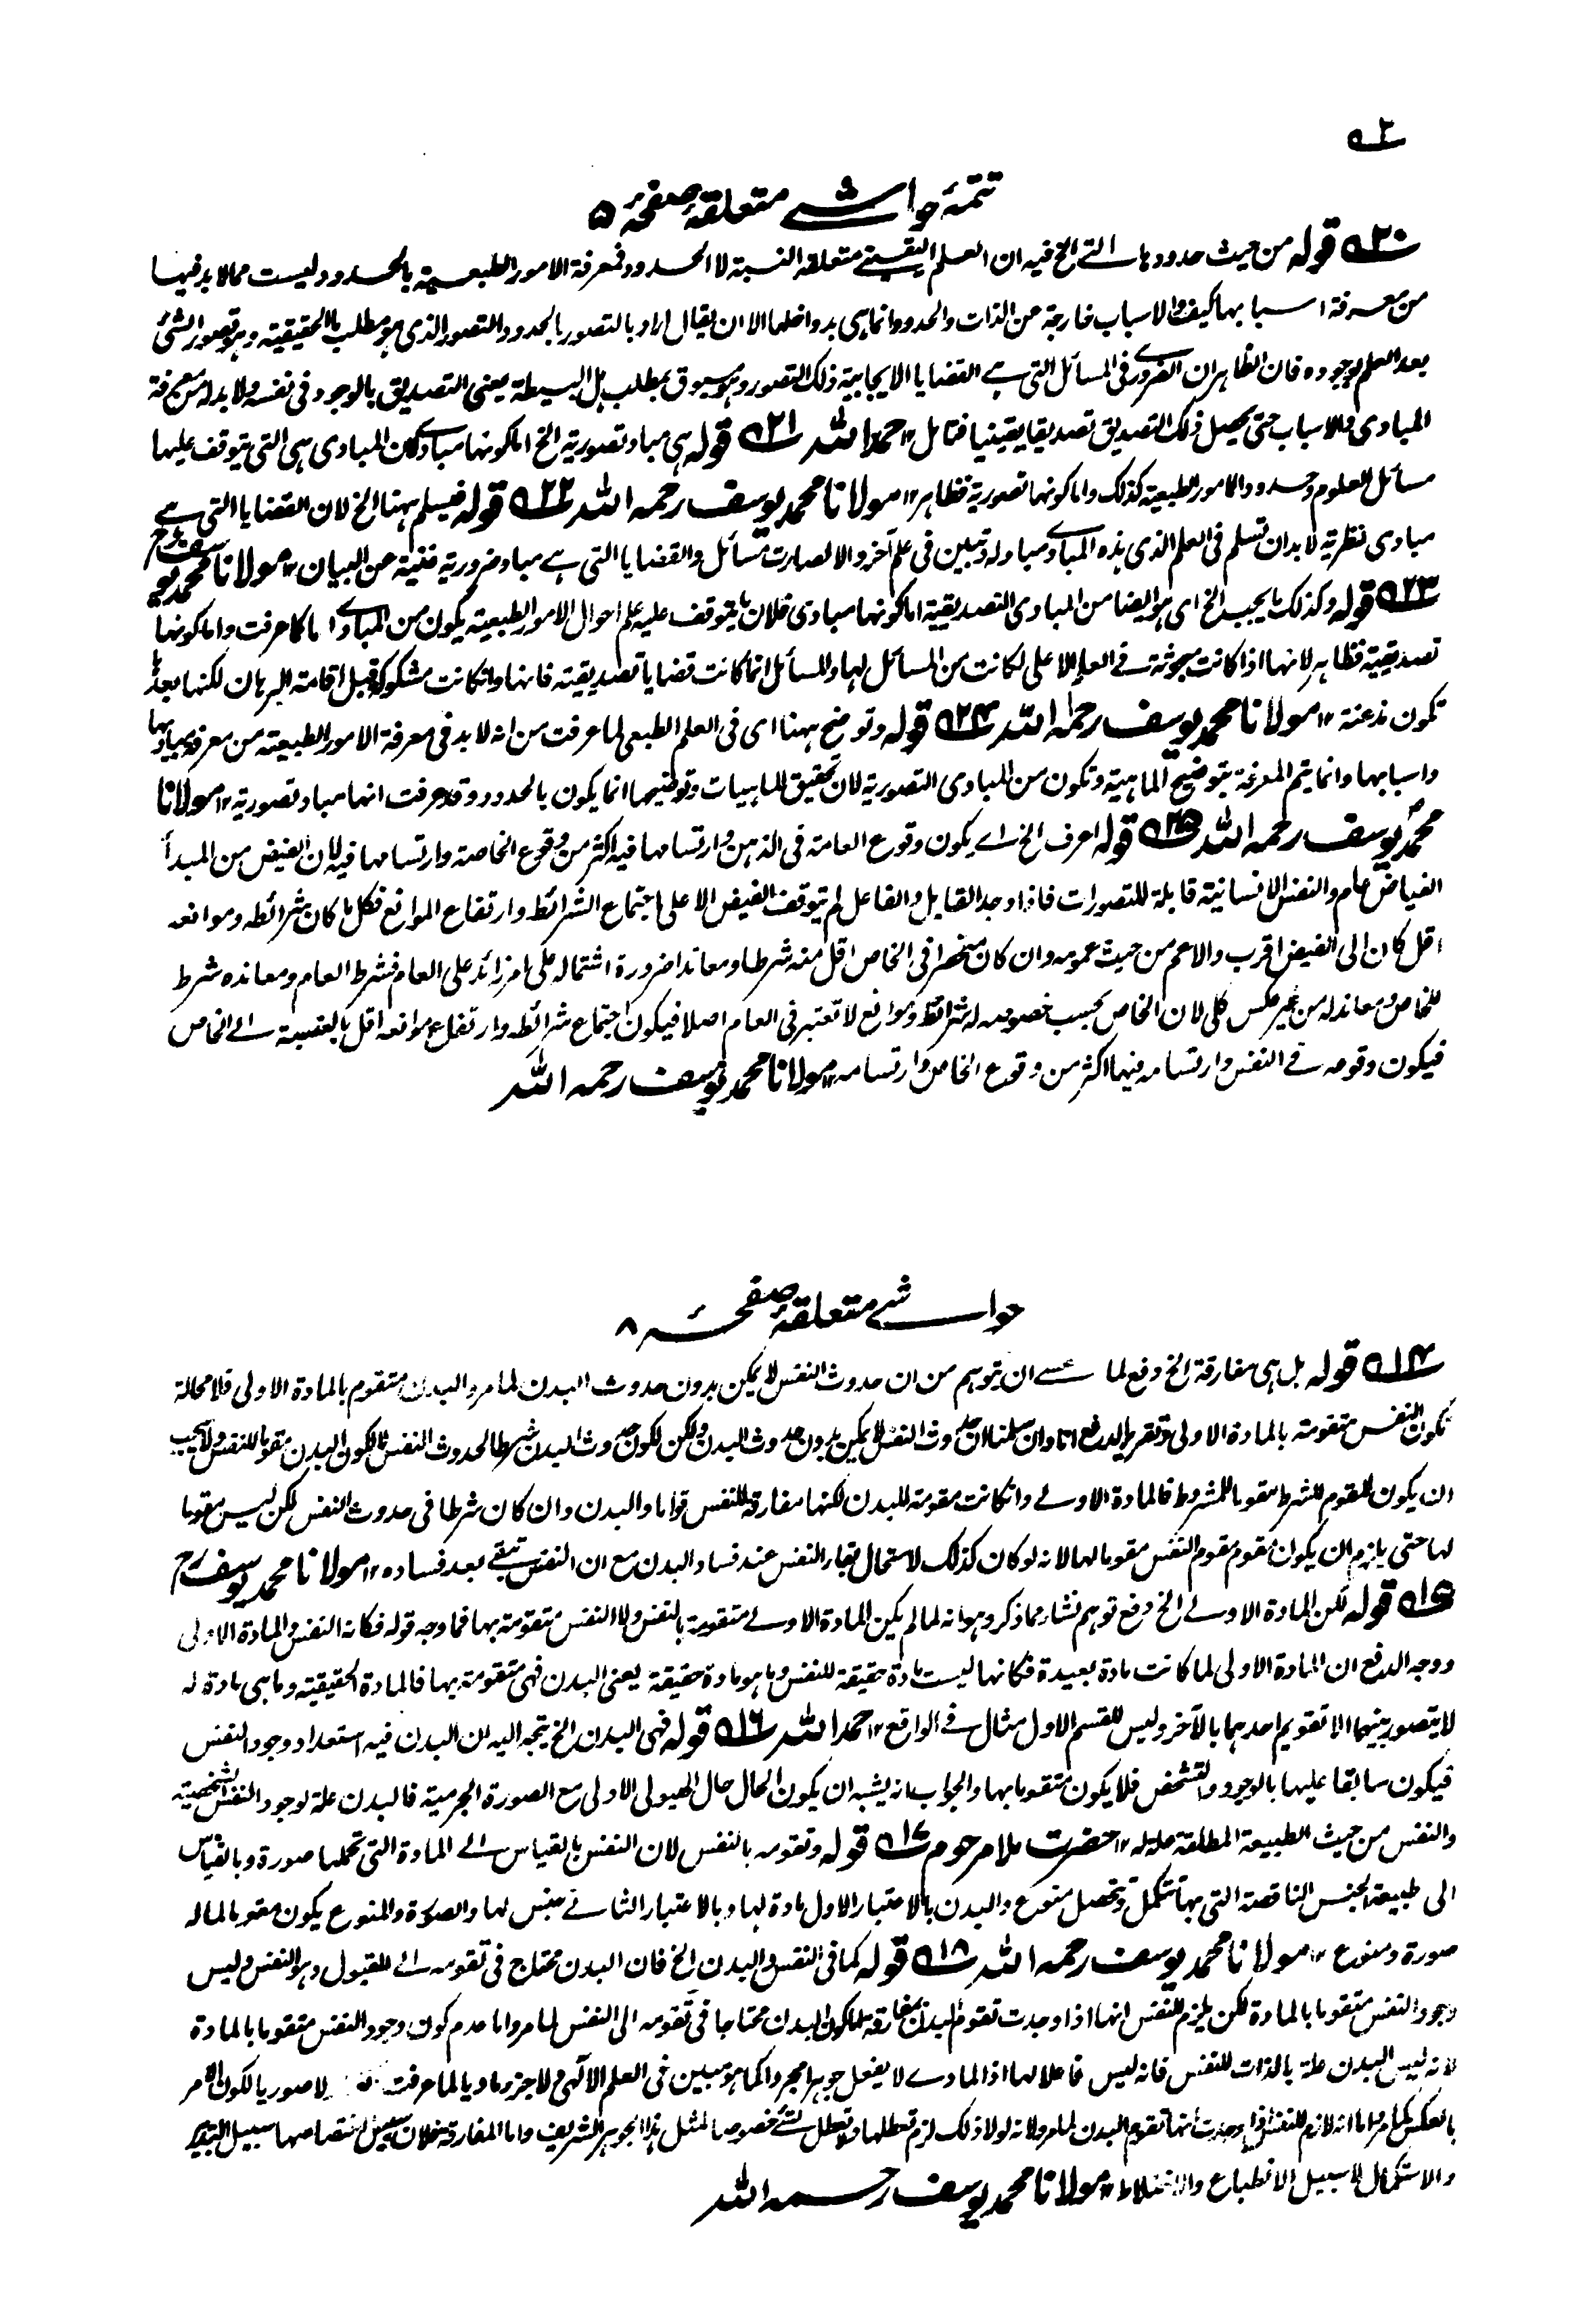 ٢
تتمۂ حواشی متعلقۂ صفحۂ ٥
٢٠ قوله من حيث حدودها التي الخ فيه ان العلم اليقيني متعلقه النسبة لا الحدود فمعرفة الامور الطبعية بالحدود وليست مما لابد فيها
من معرفة اسبابها كيف والاسباب خارجة عن الذات والحدود انما هي بدواخلها الا ان يقال اراد بالتصور بالحدود التصور الذي هو مطلب ما الحقيقية وهو تصور الشئ
بعد العلم بوجوده فان الظاهر ان الضروري في المسائل التي هي القضايا الايجابية ذلك التصور وهو مسبوق بمطلب هل البسيطة يعني التصديق بالوجود في نفسه ولا بد له من معرفة
المبادي والاسباب حتى يحصل ذلك التصديق تصديقا يقينيا فتامل ١٢ حمد الله ٢١ قوله هي مباد تصورية الخ اما كونها مبادي فلان المبادي هي التي يتوقف عليها
مسائل العلوم وحدود الامور الطبيعية كذلك واما كونها تصورية فظاهر ١٢ مولانا محمد يوسف رحمه الله ٢٢ قوله فيسلم ههنا الخ لان القضايا التي هي
مبادي نظرية لا بد ان تسلم في العلم الذي هذه المبادي مباد له وتبين في علم آخر والا لصارت مسائل والقضايا التي هي مباد ضرورية غنية عن البيان ١٢ مولانا محمد يوسف رح
٢٣ قوله وكذلك ما يجب الخ اي هو ايضا من المبادي التصديقية اما كونها مبادي فلان ما يتوقف عليه علم احوال الامور الطبيعية يكون من المبادي لما كما عرفت واما كونها
تصديقية فظاهر لانها اذا كانت مبحوثة في العلم الاعلى لكانت من المسائل لها والمسائل انما كانت قضايا تصديقية فانها وان كانت مشكوكة قبل اقامة البرهان لكنها بعدها
تكون مذعنة ١٢ مولانا محمد يوسف رحمه الله ٢٤ قوله وتوضح ههنا اي في العلم الطبعي لما عرفت من انه لا بد في معرفة الامور الطبيعية من معرفة مباديها
واسبابها وانما يتم المعرفة بتوضيح الماهية وتكون من المبادي التصورية لان تحقيق الماهيات وتوضيحها انما يكون بالحدود وقد عرفت انها مباد تصورية ١٢ مولانا
محمد يوسف رحمه الله ٢٥ قوله اعرف الخ اي يكون وقوع العامة في الذهن وارتسامها فيه اكثر من وقوع الخاصة وارتسامها فيه لان الفيض من المبدأ
الفياض عام والنفس الانسانية قابلة للتصورات فاذا وجد القابل والفاعل لم يتوقف الفيض الا على اجتماع الشرائط وارتفاع الموانع فكل ما كان شرائطه وموانعه
اقل كان الى الفيض اقرب والاعم من حيث عمومه وان كان منحصرا في الخاص اقل منه شرطا ومعاندا ضرورة اشتماله على امر زائد على العام فشرط العام ومعانده شرط
للخاص ومعاند له من غير عكس كلي لان الخاص بحسب خصوصه له شرائط وموانع لا تعتبر في العام اصلا فيكون اجتماع شرائطه وارتفاع موانعه اقل بالنسبة الى الخاص
فيكون وقوعه في النفس وارتسامه فيها اكثر من وقوع الخاص وارتسامه ١٢ مولانا محمد يوسف رحمه الله
حواشی متعلقۂ صفحۂ ٨
١٤ قوله بل هي مفارقة الخ دفع لما عسى ان يتوهم من ان حدوث النفس لا يمكن بدون حدوث البدن لما مر والبدن متقوم بالمادة الاولى فلا محالة
تكون النفس متقومة بالمادة الاولى وتقرير الدفع انا وان سلمنا ان حدوث النفس لا يمكن بدون حدوث البدن ولكن لكون حدوث البدن شرطا لحدوث النفس لا لكون البدن مقوما للنفس ولا يجب
ان يكون المقوم للشرط مقوما للمشروط فالمادة الاولى وان كانت مقومة للبدن لكنها مفارقة للنفس قواما والبدن وان كان شرطا في حدوث النفس لكن ليس مقوما
لها حتى يلزم ان يكون مقوم مقوم النفس مقوما لها لانه لو كان كذلك لاستحال بقاء النفس عند فساد البدن مع ان النفس تبقى بعد فساده ١٢ مولانا محمد يوسف رح
١٥ قوله لكن المادة الاولى الخ دفع توهم نشأ مما ذكر وهو انه لما لم يكن المادة الاولى متقومة بالنفس ولا النفس متقومة بها فما وجه قوله فكانه النفس والمادة الاولى
ووجه الدفع ان المادة الاولى لما كانت مادة بعيدة فكانها ليست مادة حقيقة للنفس وما هو مادة حقيقة يعني البدن فهي متقومة بها فالمادة الحقيقية وما هي مادة له
لا يتصور بينهما الا تقويم احدهما بالآخر وليس للقسم الاول مثال في الواقع ١٢ حمد الله ١٦ قوله فهي البدن الخ يتجه اليه ان البدن فيه استعداد وجود النفس
فيكون سابقا عليها بالوجود والتشخص فلا يكون متقوما بها والجواب انه يشبه ان يكون الحال حال الهيولى الاولى مع الصورة الجرمية فالبدن علة لوجود النفس الشخصية
والنفس من حيث الطبيعة المطلقة علة له ١٢ حضرت ملا مرحوم ١٧ قوله وتقومه بالنفس لان النفس بالقياس الى المادة التي تحلها صورة وبالقياس
الى طبيعة الجنس الناقصة التي بها تتكمل وتحصل منوع والبدن بالاعتبار الاول مادة لها وبالاعتبار الثاني جنس لها والصورة والمنوع يكون مقوما لما له
صورة ومنوع ١٢ مولانا محمد يوسف رحمه الله ١٨ قوله كما في النفس والبدن الخ فان البدن محتاج في تقومه الى المقبول وهو النفس وليس
وجود النفس متقوما بالمادة لكن يلزم للنفس انها اذا وجدت تقوم البدن مفارقة لما كون البدن محتاجا في تقومه الى النفس لما مر واما عدم كون وجود النفس متقوما بالمادة
لانه ليس البدن علة بالذات للنفس فانه ليس فاعلا لها اذ المادي لا يفعل جوهرا مجردا كما هو مبين في العلم الالهي ولا جزء ماديا لما عرفت ولا صوريا لكون الامر
بالعكس كما مر واما انه لازم للنفس اذا وجدت انها تقوم البدن لما مر ولانه لولا ذلك لزم تعطلها ولا تعطل لشئ خصوصا لمثل هذا الجوهر الشريف واما المفارقة فلان سبيل اختصاصها سبيل التدبير
والاستكمال لا سبيل الانطباع والاختلاط ١٢ مولانا محمد يوسف رحمه الله